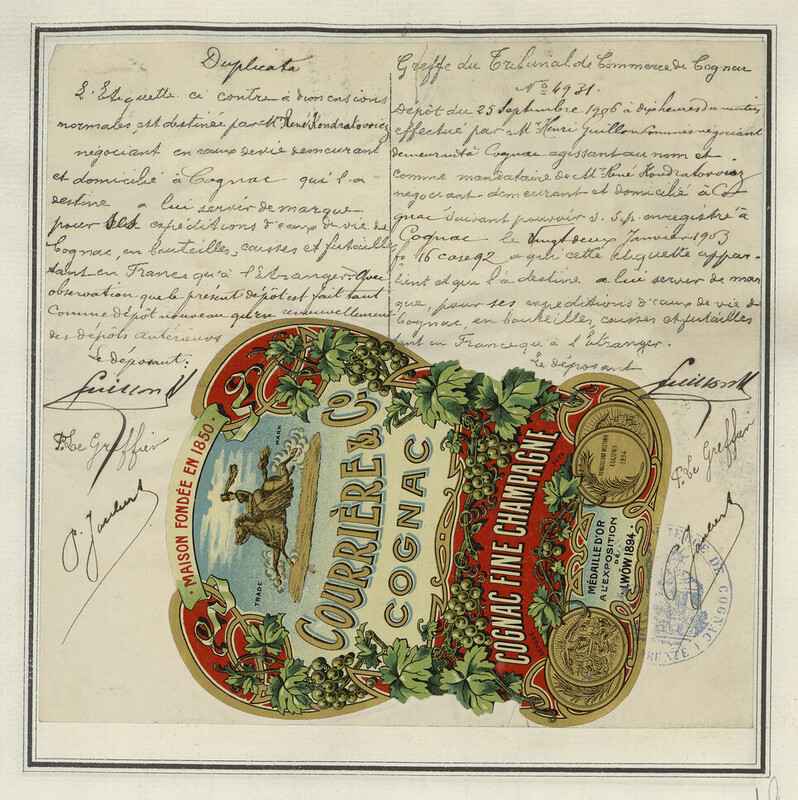 Duplicata
L'Etiquette ci contre à dimensions
normales, est destinée par Mr. René Kondratovoicz
négociant en eaux de vie demeurant
et domicilié à Cognac qui l'a
destine a lui servir de marque
pour ses expéditions d'eaux de vie de
Cognac, en bouteilles, caisses et futailles
tant en France qu'à l'Etranger. Avec
observation que le présent dépôt est fait tant
comme dépôt nouveau qu'en renouvellement
des dépôts antérieurs
Le déposant:
Guillon H
P. Le Greffier
P. Jaulert
Greffe du Tribunal de Commerce de Cognac
No 4931.
Dépôt du 25 Septembre 1906 à dix heures du matin
effectué par Mr. Henri Guillon Commis négociant
demeurant à Cognac agissant au nom et
comme mandataire de Mr. René Kondratovoicz
négociant demeurant et domicilié à Co
gnac suivant pouvoir S. S. p. enregistré à
Cognac le Vingt deux Janvier 1903
fo 16 case 92 a qui cette étiquette appar-
tient et qui l'a destine a lui servir de mar
que, pour ses expéditions d'eaux de vie de
Cognac, en bouteilles, caisses et futailles
tant en France qu'à l'étranger.
Le déposant
Guillon H
P. Le Greffier
MAISON FONDÉE EN 1850
TRADE MARK
COURRIÈRE & Co.
COGNAC
COGNAC FINE CHAMPAGNE
MÉDAILLE D'OR
A L'EXPOSITION
DE
LWÓW 1894
1894
DE COGNAC